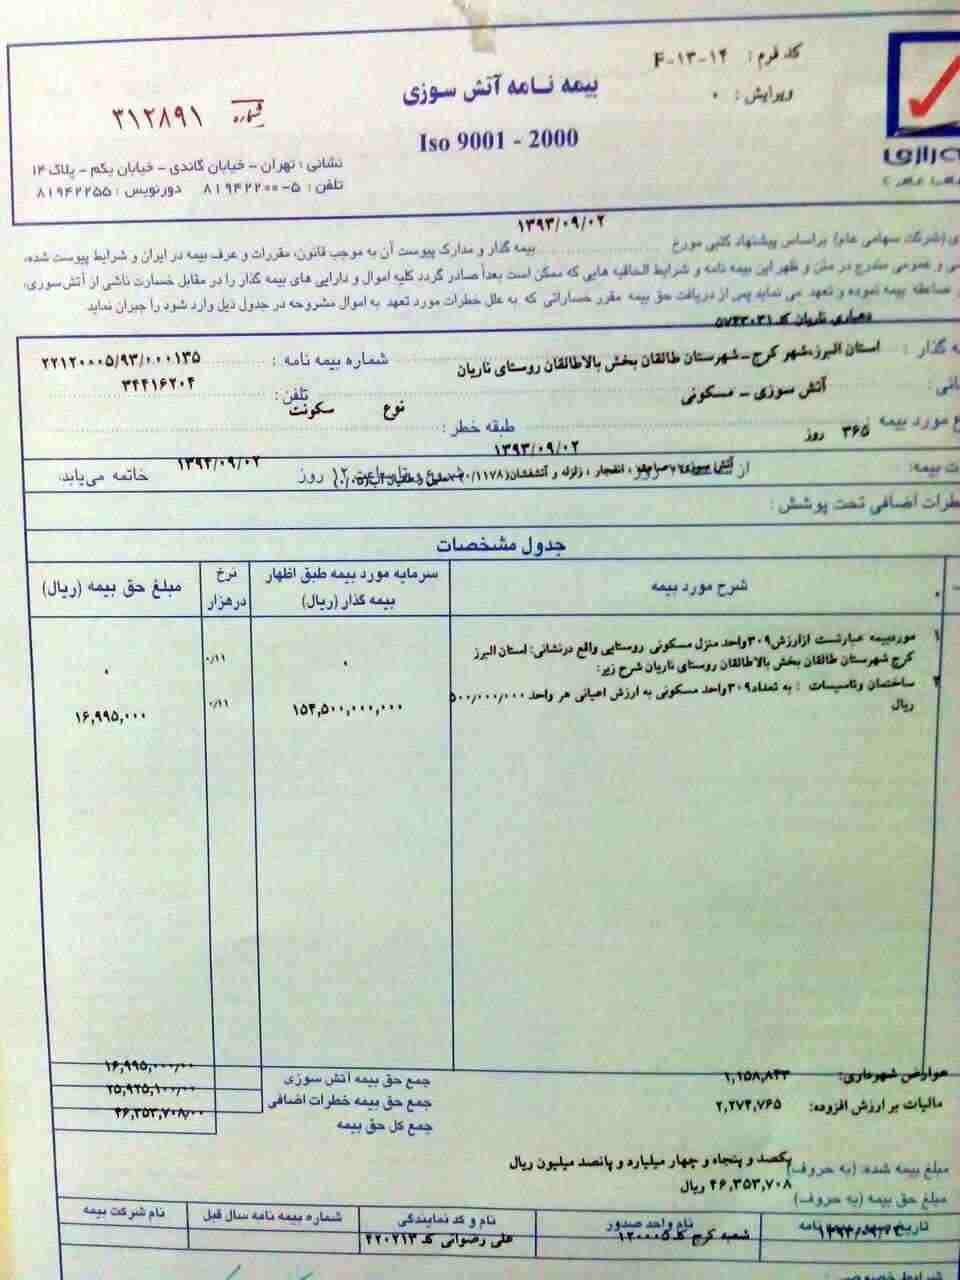 کد فرم : F-۱۳-۱۴
ویرایش : ۰
بیمه نامه آتش سوزی
Iso 9001 - 2000
شماره ۳۱۲۸۹۱
نشانی : تهران - خیابان گاندی - خیابان یکم - پلاک ۱۴
تلفن : ۵-۸۱۹۴۲۲۰۰ دورنویس : ۸۱۹۴۲۲۵۵
رازی
۱۳۹۳/۰۹/۰۲
(شرکت سهامی عام) براساس پیشنهاد کتبی مورخ .................... بیمه گذار و مدارک پیوست آن به موجب قانون، مقررات و عرف بیمه در ایران و شرایط پیوست شده،
و عمومی مندرج در متن و ظهر این بیمه نامه و شرایط الحاقیه هایی که ممکن است بعداً صادر گردد کلیه اموال و دارایی های بیمه گذار را در مقابل خسارت ناشی از آتش سوزی،
صاعقه بیمه نموده و تعهد می نماید پس از دریافت حق بیمه مقرر خساراتی که به علل خطرات مورد تعهد به اموال مشروحه در جدول ذیل وارد شود را جبران نماید
دهیاری ناریان کد ۵۷۴۳۰۳۱
گذار : استان البرز،شهر کرج-شهرستان طالقان بخش بالاطالقان روستای ناریان
شماره بیمه نامه : ۲۲۱۲۰۰۰۵/۹۳/۰۰۰۱۳۵
آتش سوزی - مسکونی
تلفن : ۳۴۴۱۶۲۰۴
مورد بیمه ۳۶۵ روز
طبقه خطر : نوع سکونت
۱۳۹۳/۰۹/۰۲
بیمه: از
روز ۱۳۹۴/۰۹/۰۲ خاتمه می‌یابد.
خطرات اضافی تحت پوشش :
جدول مشخصات
شرح مورد بیمه
سرمایه مورد بیمه طبق اظهار بیمه گذار (ریال)
نرخ درهزار
مبلغ حق بیمه (ریال)
۱ موردبیمه عبارتست ازارزش۳۰۹واحد منزل مسکونی روستایی واقع درنشانی: استان البرز
کرج شهرستان طالقان بخش بالاطالقان روستای ناریان شرح زیر:
۰ ۰/۱۱ ۰
۲ ساختمان وتاسیسات : به تعداد۳۰۹واحد مسکونی به ارزش اعیانی هر واحد ۵۰۰/۰۰۰/۰۰۰
ریال
۱۵۴,۵۰۰,۰۰۰,۰۰۰ ۰/۱۱ ۱۶,۹۹۵,۰۰۰
عوارض شهرداری: ۱,۱۵۸,۸۴۳
مالیات بر ارزش افزوده: ۲,۲۷۴,۷۶۵
جمع حق بیمه آتش سوزی ۱۶,۹۹۵,۰۰۰/۰۰
جمع حق بیمه خطرات اضافی ۲۵,۹۲۵,۱۰۰/۰۰
جمع کل حق بیمه ۴۶,۳۵۳,۷۰۸/۰۰
مبلغ بیمه شده: (به حروف) یکصد و پنجاه و چهار میلیارد و پانصد میلیون ریال
مبلغ حق بیمه (به حروف) ۴۶,۳۵۳,۷۰۸ ریال
نام واحد صدور
نام و کد نمایندگی
شماره بیمه نامه سال قبل
نام شرکت بیمه
شعبه کرج کد۱۲۰۰۰۵
علی رضوانی کد ۴۲۰۲۱۳